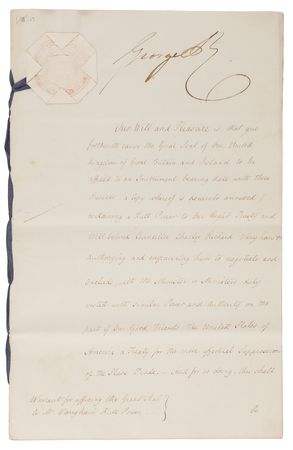 George R.
Our Will and Pleasure is that you
forthwith cause the Great Seal of Our United
Kingdom of Great Britain and Ireland to be
affixed to an Instrument bearing date with these
Presents a Copy whereof is hereunto annexed
containing a Full Power to Our Right Trusty and
Well beloved Councillor Charles Richard Vaughan
authorizing and empowering him to negotiate and
conclude with the Minister or Ministers duly
vested with similar Power and Authority on the
part of Our Good Friends The United States of
America, a Treaty for the more effectual Suppression
of the Slave Trade. And for so doing, this shall
be
Warrant for affixing the Great Seal
to Mr. Vaughan Full Power